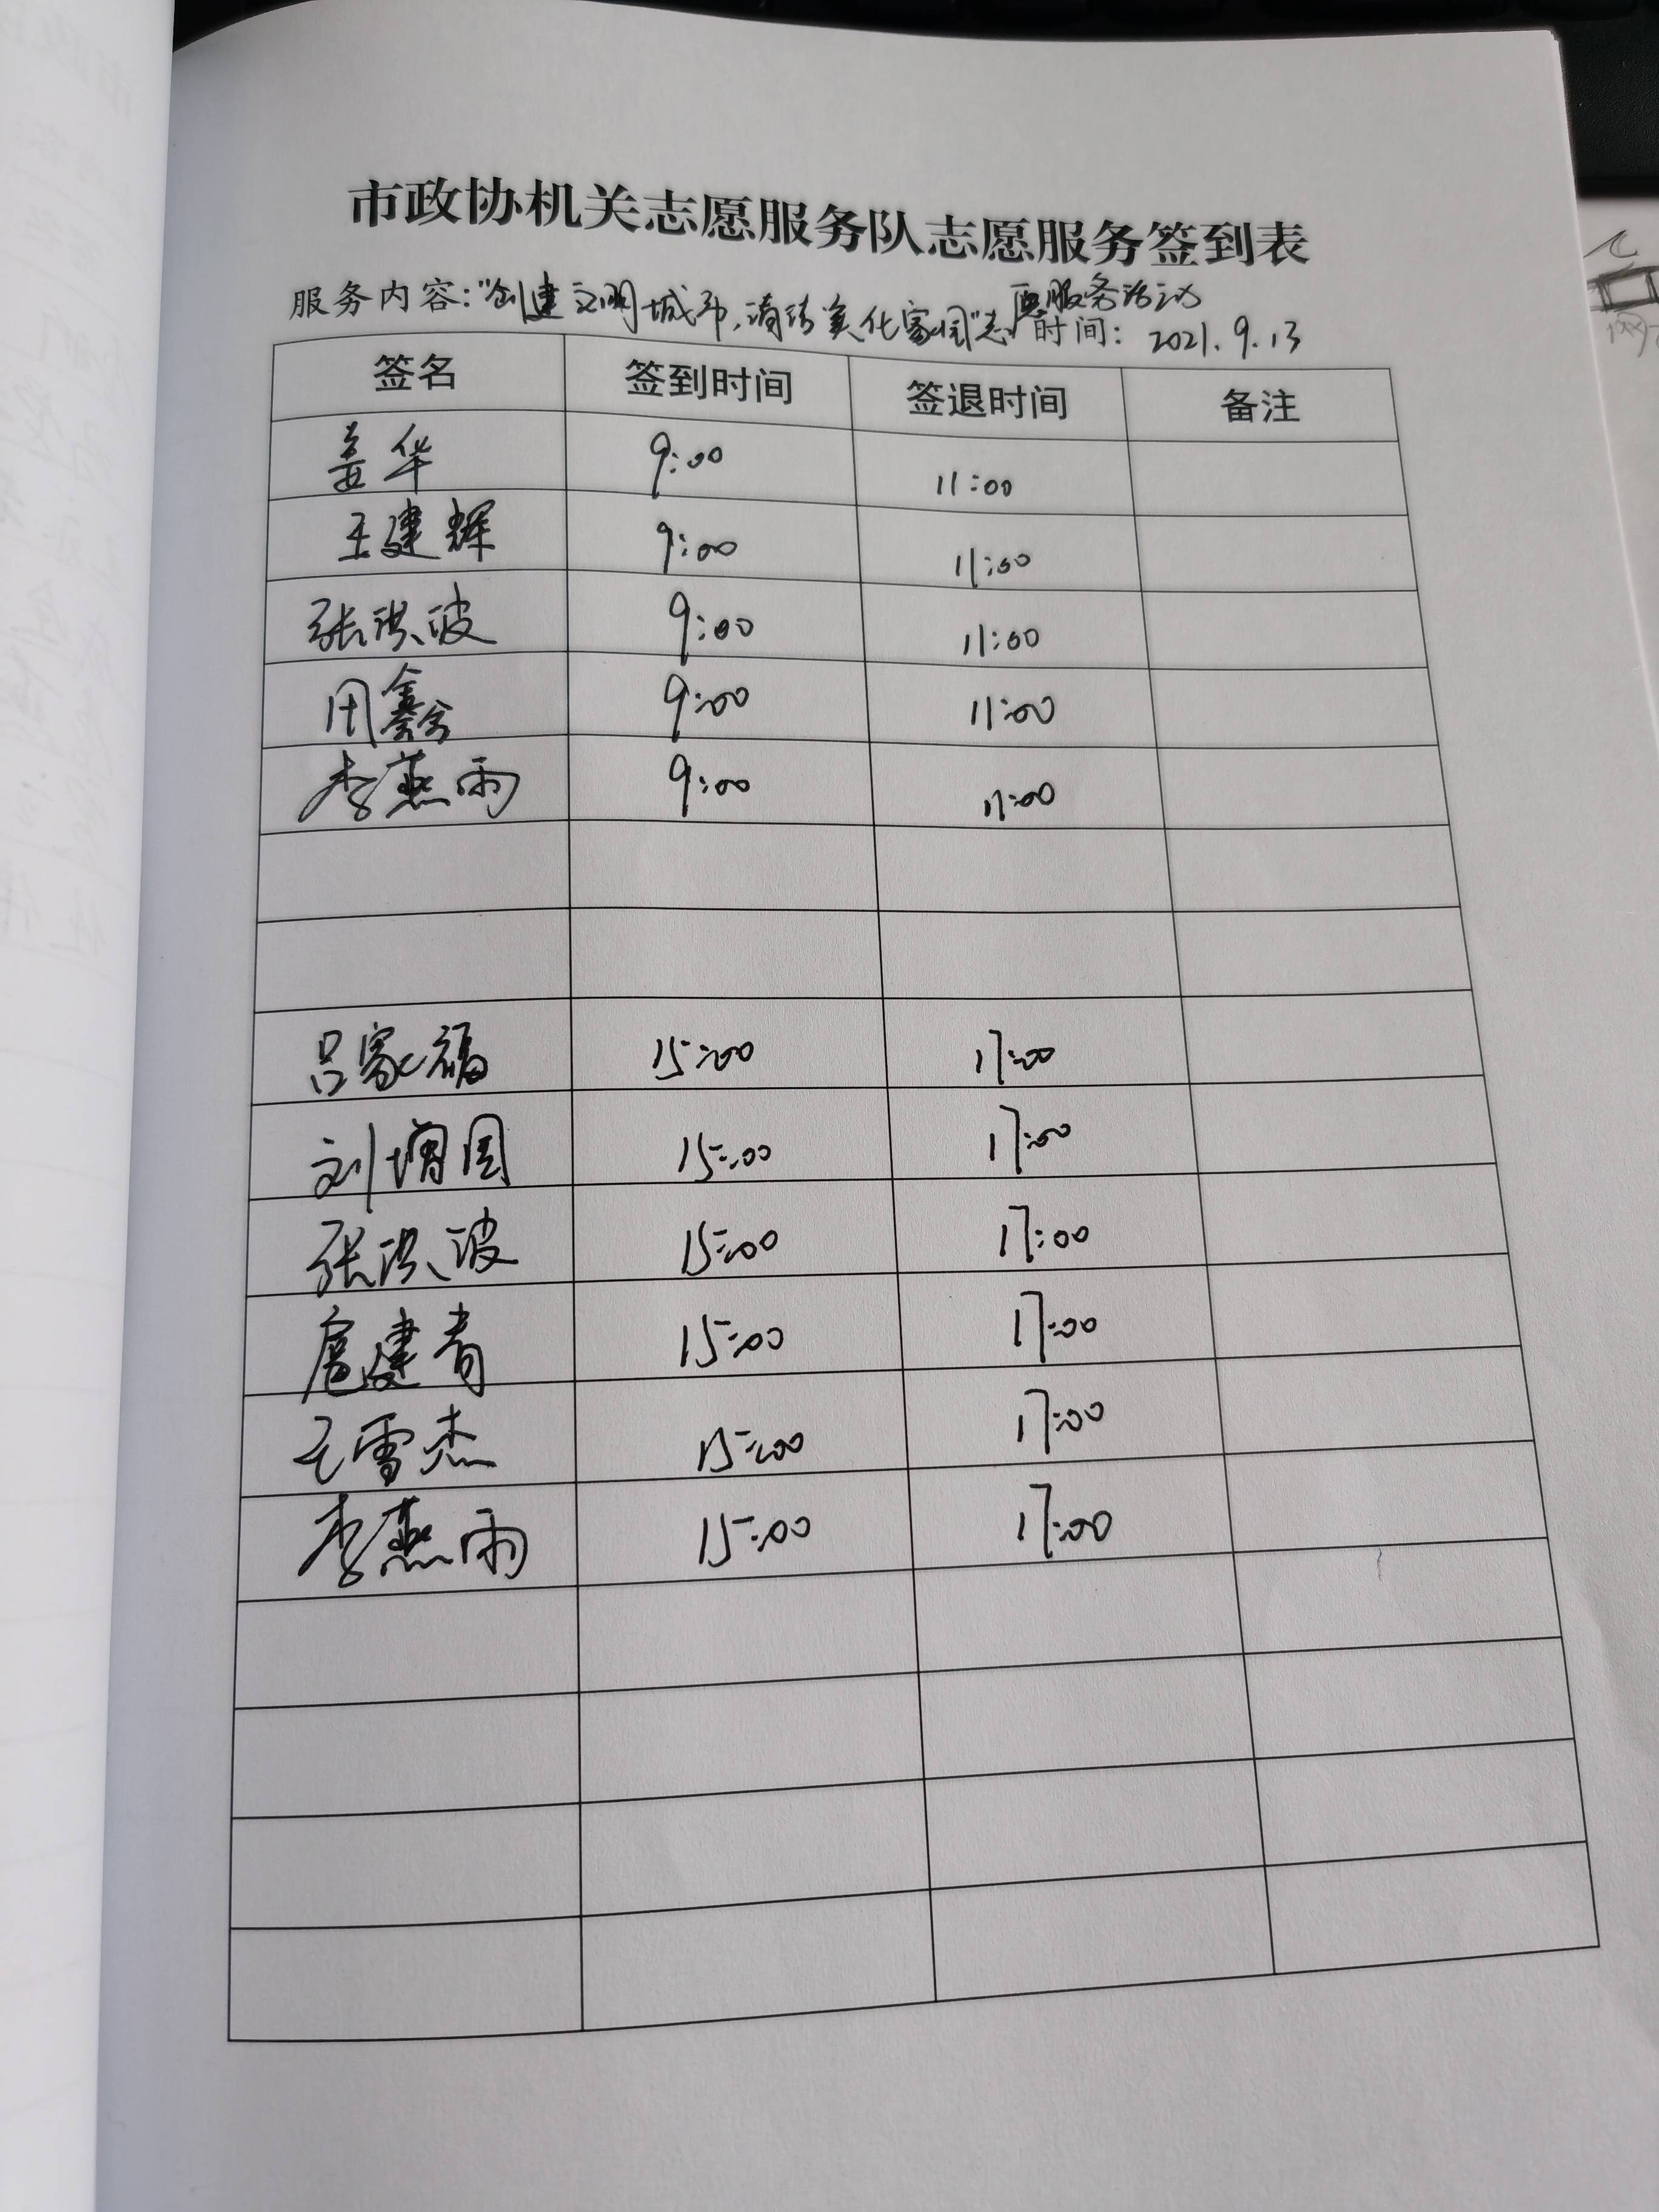 市政协机关志愿服务队志愿服务签到表
服务内容:"创建文明城市,清洁美化家园"志愿服务活动
时间: 2021.9.13
签名 签到时间 签退时间 备注
姜华 9:00 11:00
王建辉 9:00 11:00
张洪波 9:00 11:00
周鑫 9:00 11:00
李燕雨 9:00 11:00
吕家福 15:00 17:00
刘增国 15:00 17:00
张洪波 15:00 17:00
扈建青 15:00 17:00
王雪杰 15:00 17:00
李燕雨 15:00 17:00